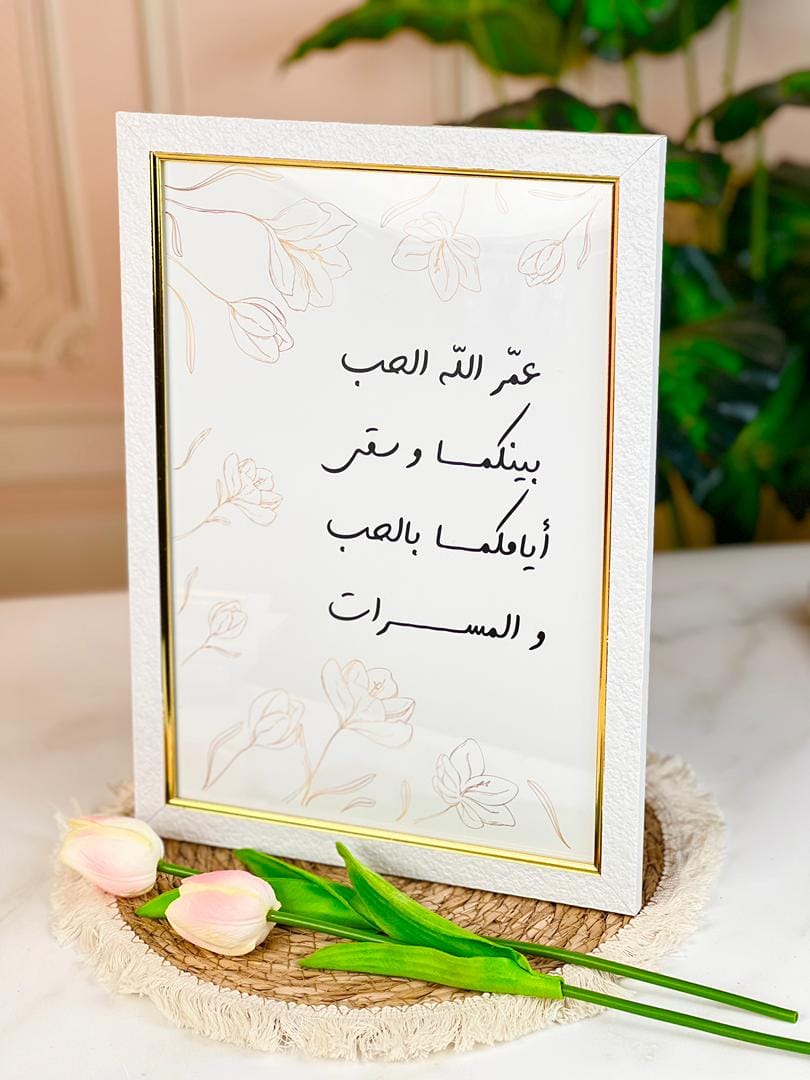 عمّر اللّه الحب
بينكما وسقى
أيامكما بالحب
و المسرات